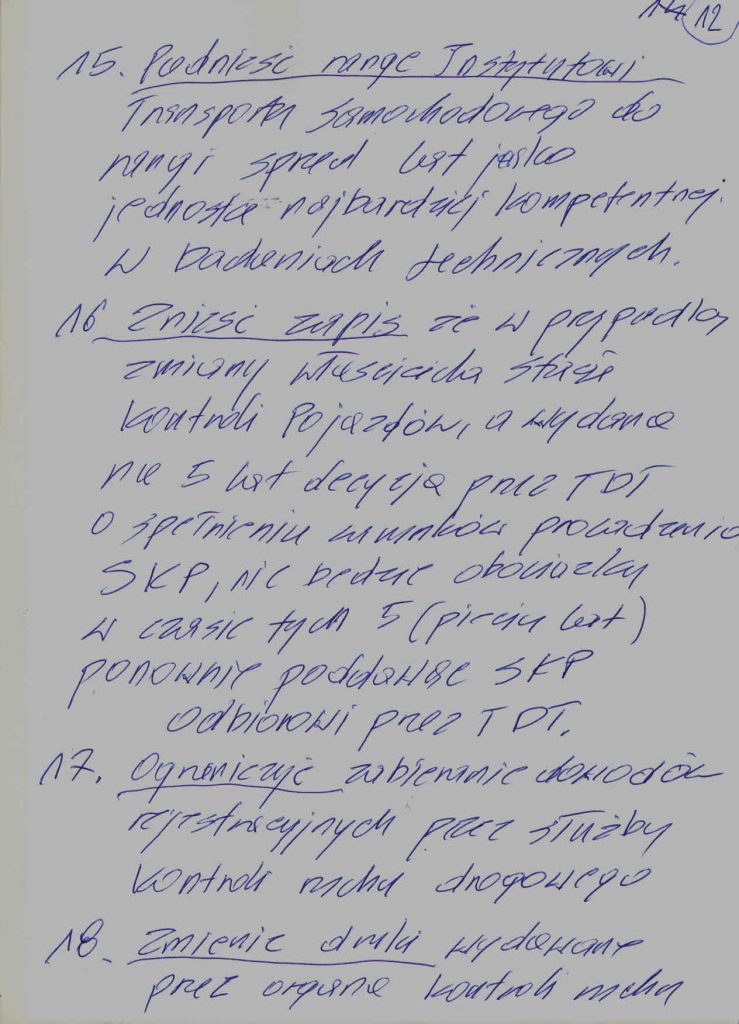 14 12
15. Podnieść rangę Instytutowi
Transportu Samochodowego do
rangi sprzed lat jako
jednostce najbardziej kompetentnej.
w badaniach technicznych.
16 Znieść zapis że w przypadku
zmiany właściciela stacji
Kontroli Pojazdów, a wydana
na 5 lat decyzja przez TDT
o spełnieniu warunków prowadzenia
SKP, nie będzie obowiązku
w czasie tych 5 (pięciu lat)
ponownie poddawać SKP
odbiorowi przez TDT.
17. Ograniczyć zabieranie dowodów
rejestracyjnych przez służby
kontroli ruchu drogowego
18. Zmienić druki wydawane
przez organa kontroli ruchu